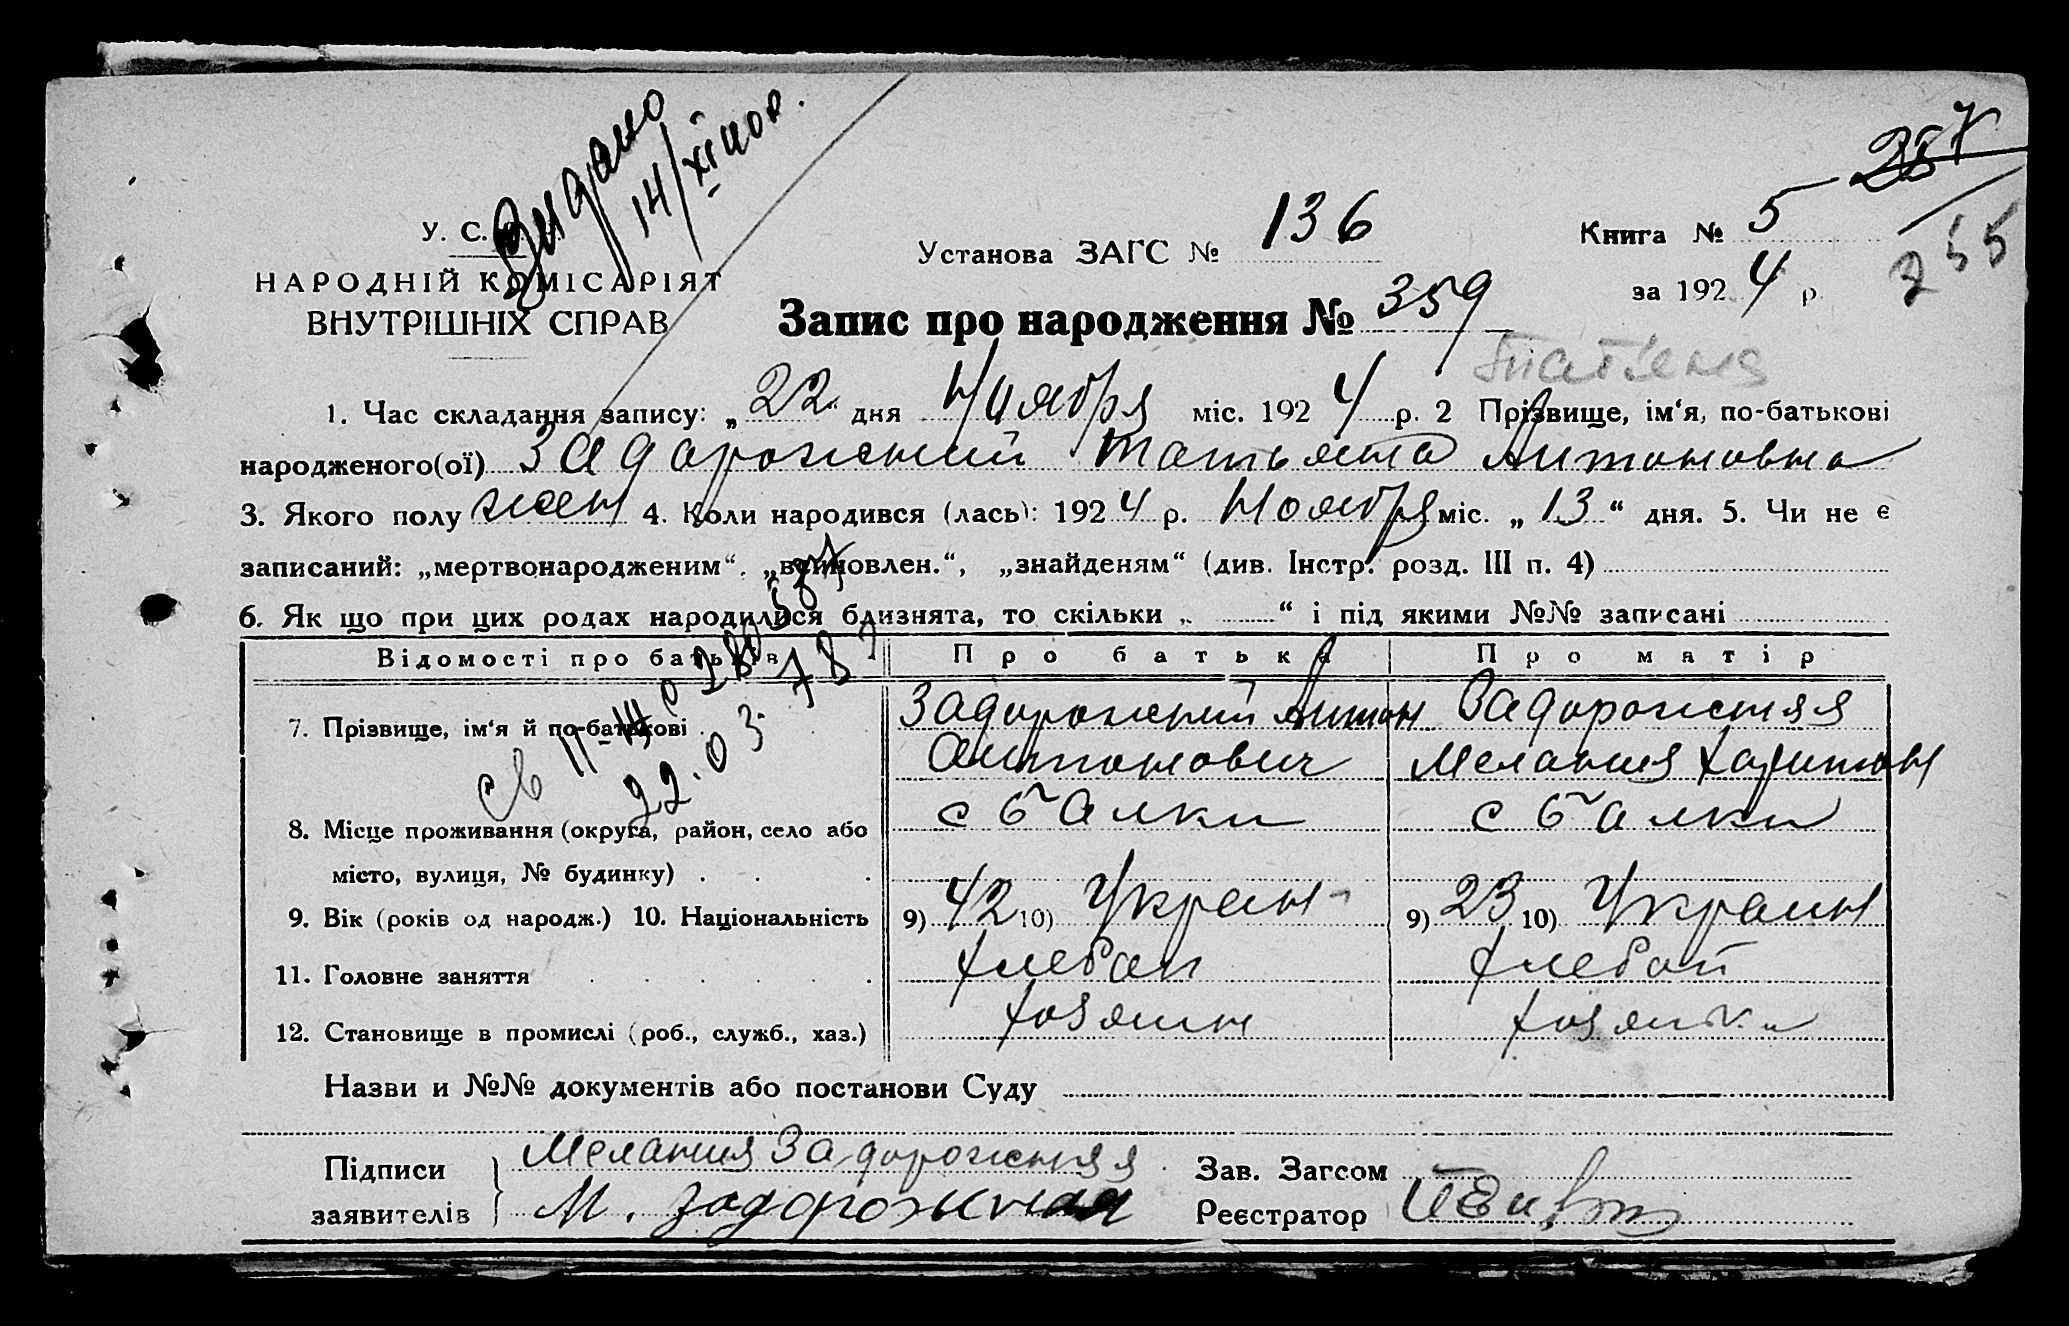 Видано
14/XI
257
255
У. С.
НАРОДНІЙ КОМІСАРІЯТ
ВНУТРІШНІХ СПРАВ
Установа ЗАГС № 136
Книга № 5
за 1924 р.
Запис про народження № 359
Татьяна
1. Час складання запису: „22“ дня Ноября міс. 1924 р. 2 Прізвище, ім‘я, по-батькові
народженого(ої) Задорожний Татьяна Антоновна
3. Якого полу жен 4. Коли народився (лась): 1924 р. Ноября міс. „13“ дня. 5. Чи не є
записаний: „мертвонародженим“, „вѝновлен.“, „знайденям“ (див. Інстр. розд. III п. 4)
6. Як що при цих родах народилися близнята, то скільки „ “ і під якими №№ записані
Відомості про батьків Про батька Про матір
7. Прізвище, ім‘я й по-батькові Задорожний Антон Задорожняя
Антонович Мелания Харитон
св II-ЖС
22.03.78
8. Місце проживання (округа, район, село або с Балки с Балки
місто, вулиця, № будинку)
9. Вік (років од народж.) 10. Національність 9) 42 10) Украин 9) 23 10) Украин
11. Головне заняття Хлебоп Хлебоп
12. Становище в промислі (роб., служб., хаз.) хозяин хозяйка
Назви и №№ документів або постанови Суду
Підписи Мелания Задорожняя Зав. Загсом
заявителів М. Задорожная Реєстратор